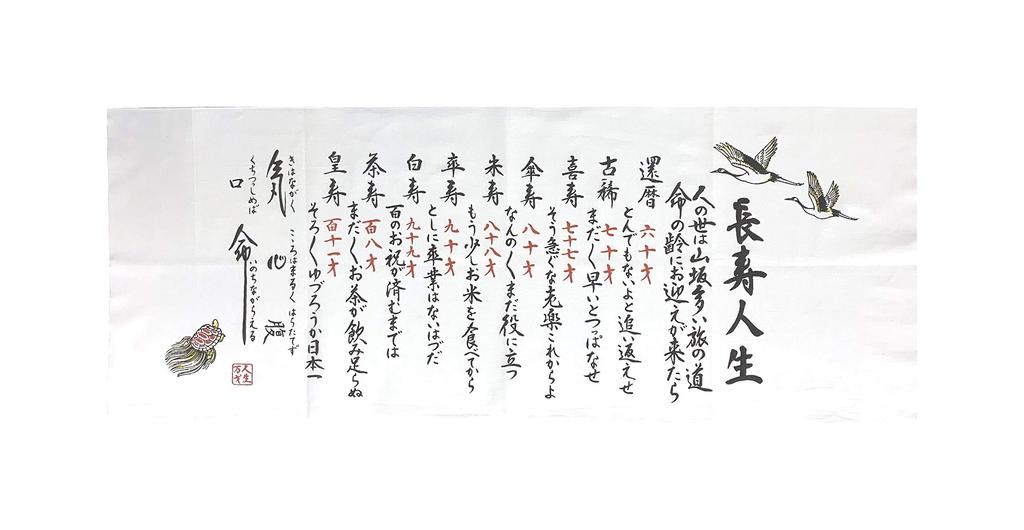 長寿人生
人の世は山坂多い旅の道
命の齢にお迎えが来たら
還暦 六十才
とんでもないよと追い返えせ
古稀 七十才
まだ〱早いとつっぱなせ
喜寿 七十七才
そう急ぐな老楽これからよ
傘寿 八十才
なんの〱まだ役に立つ
米寿 八十八才
もう少しお米を食べてから
卒寿 九十才
としに卒業はないはづだ
白寿 九十九才
百のお祝が済むまでは
茶寿 百八才
まだ〱お茶が飲み足らぬ
皇寿 百十一才
そろ〱ゆづろうか日本一
きはながく こころはまるく はらたてず
気 心 腹
くちつつしめば いのちながらえる
口 命
人生
万才